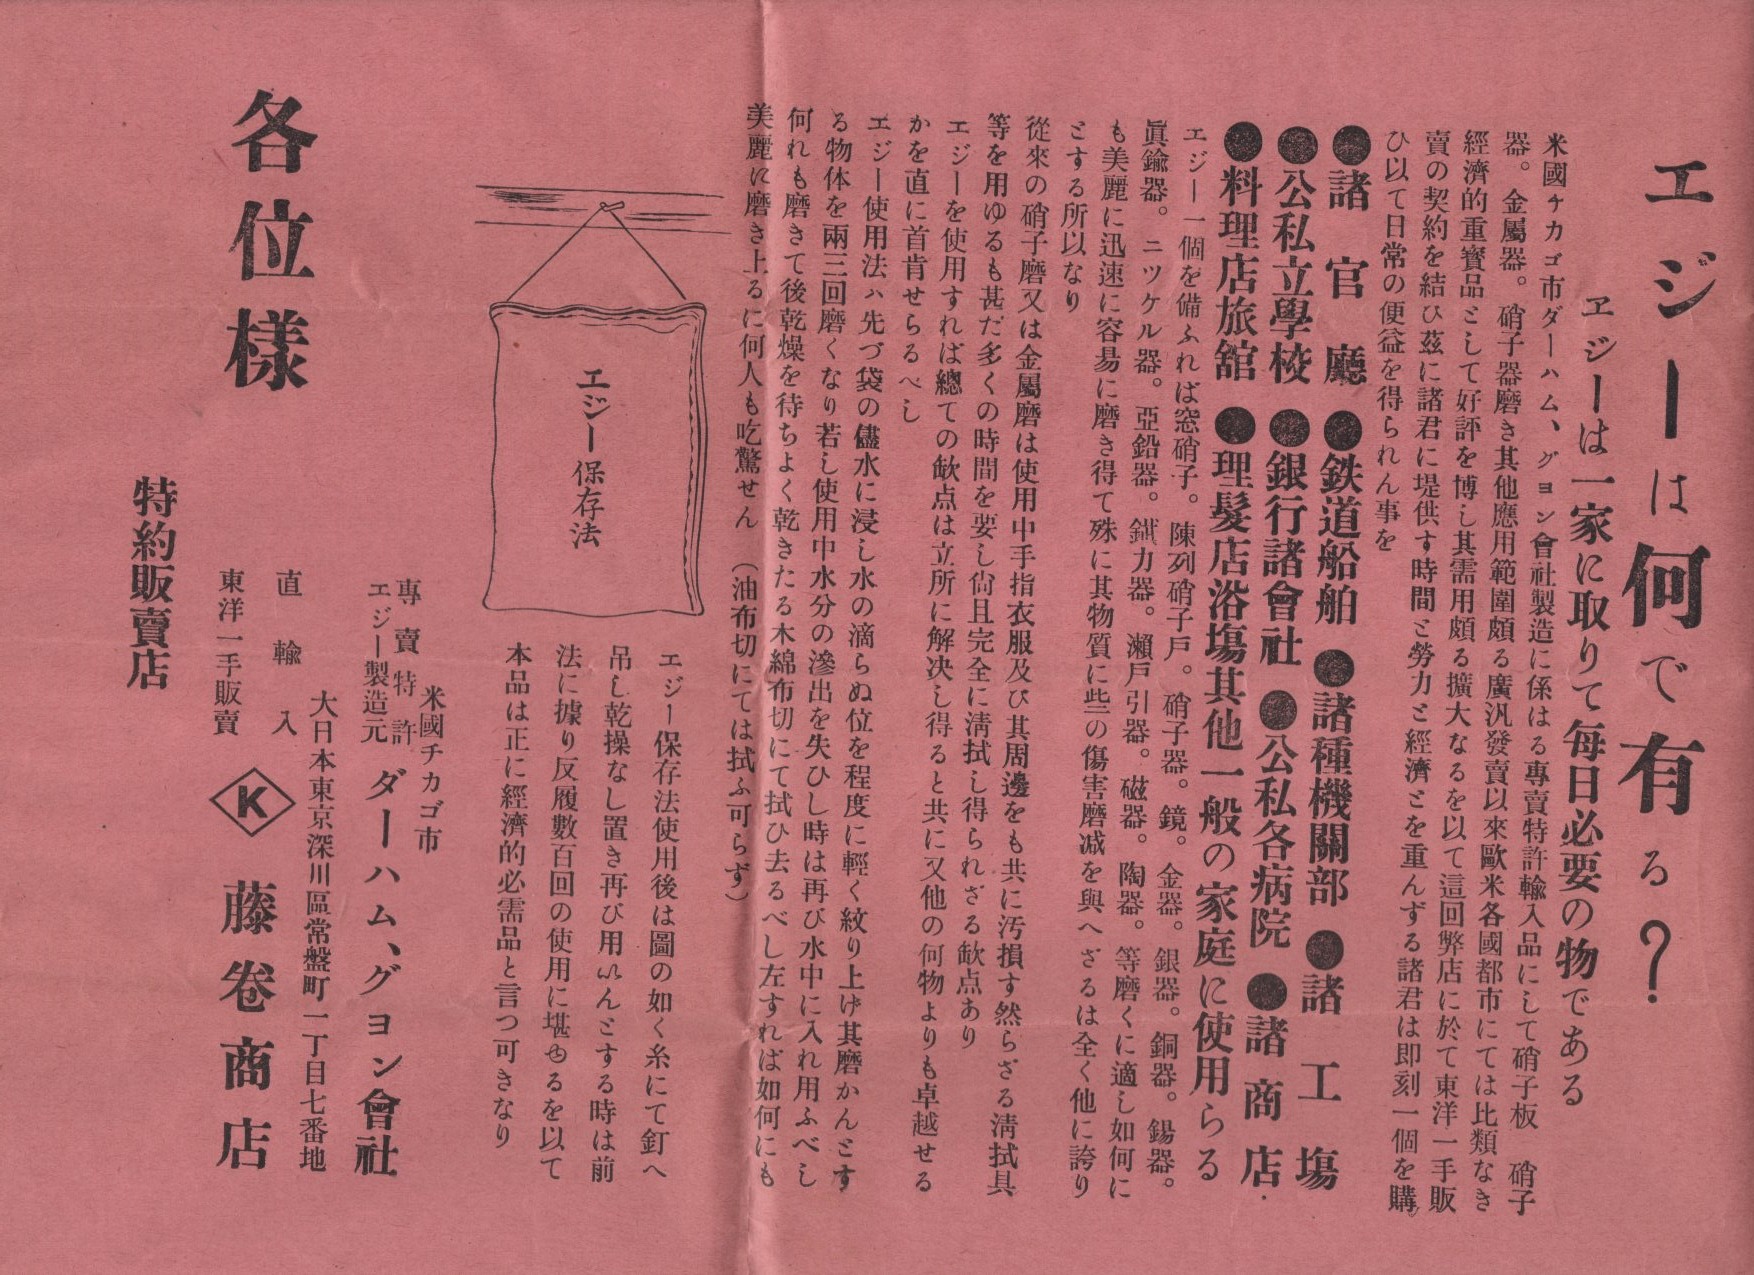 エジーは何で有る？
ヱジーは一家に取りて毎日必要の物である
米國チカゴ市ダーハム、グヨン會社製造に係はる專賣特許輸入品にして硝子板　硝子
器。金屬器。硝子器磨き其他應用範圍頗る廣汎發賣以來歐米各國都市にては比類なき
經濟的重寶品として好評を博し其需用頗る擴大なるを以て這回弊店に於て東洋一手販
賣の契約を結ひ茲に諸君に堤供す時間と勞力と經濟とを重んずる諸君は即刻一個を購
ひ以て日常の便益を得られん事を
●諸官廳●鉄道船舶●諸種機關部●諸工塲
●公私立學校●銀行諸會社●公私各病院●諸商店
●料理店旅舘●理髮店浴塲其他一般の家庭に使用らる
エジー一個を備ふれば窓硝子。陳列硝子戸。硝子器。鏡。金器。銀器。銅器。錫器。
眞鍮器。ニツケル器。亞鉛器。鐵力器。瀬戸引器。磁器。陶器。等磨くに適し如何に
も美麗に迅速に容易に磨き得て殊に其物質に些の傷害磨減を與へざるは全く他に誇り
とする所以なり
從來の硝子磨又は金屬磨は使用中手指衣服及び其周邊をも共に汚損す然らざる淸拭具
等を用ゆるも甚だ多くの時間を要し尙且完全に淸拭し得られざる缼点あり
エジーを使用すれば總ての缼点は立所に解决し得ると共に又他の何物よりも卓越せる
かを直に首肯せらるべし
エジー使用法ハ先づ袋の儘水に浸し水の滴らぬ位を程度に輕く紋り上げ其磨かんとす
る物体を兩三回磨くなり若し使用中水分の滲出を失ひし時は再び水中に入れ用ふべし
何れも磨きて後乾燥を待ちよく乾きたる木綿布切にて拭ひ去るべし左すれば如何にも
美麗に磨き上るに何人も吃驚せん（油布切にては拭ふ可らず）
エジー保存法
エジー保存法使用後は圖の如く糸にて釘へ
吊し乾操なし置き再び用いんとする時は前
法に據り反履數百回の使用に堪ゆるを以て
本品は正に經濟的必需品と言つ可きなり
米國チカゴ市
專賣特許
エジー製造元
ダーハム、グヨン會社
大日本東京深川區常盤町一丁目七番地
直輸入
東洋一手販賣
K
藤卷商店
各位樣
特約販賣店